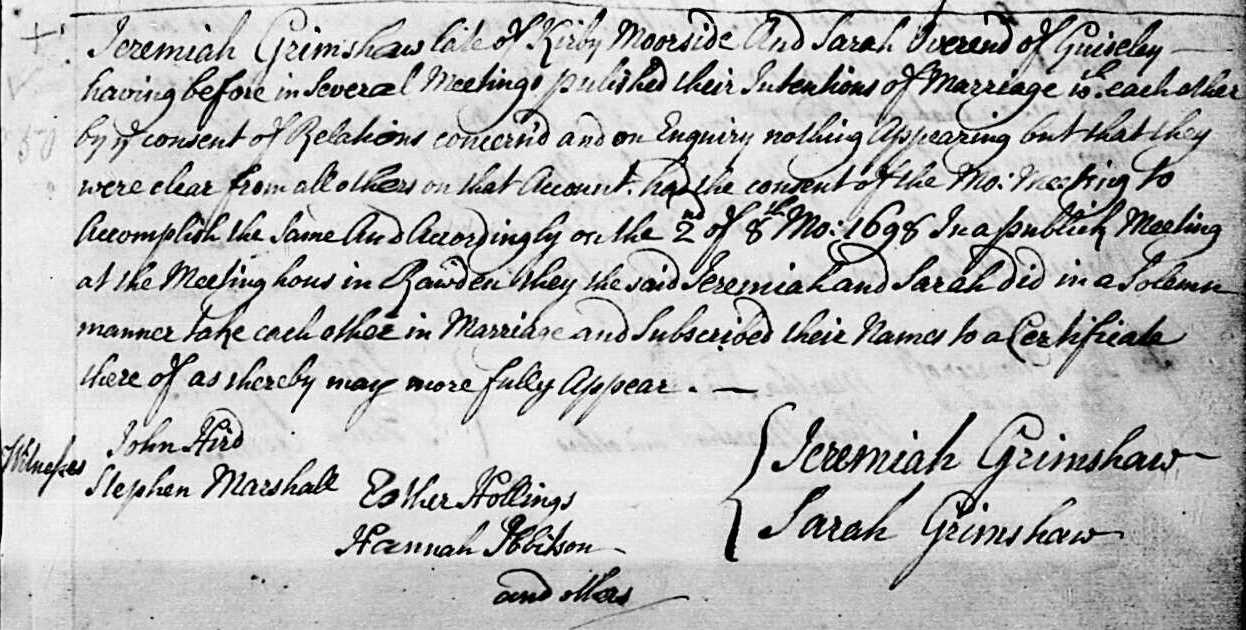 Jeremiah Grimshaw late of Kirby Moorside And Sarah Overend of Guiseley
having before in Several Meetings published their Intentions of Marriage wth each other
by ye consent of Relations concern'd and on Enquiry nothing Appearing but that they
were clear from all others on that Account, had the consent of the Mo: Meeting to
Accomplish the Same And Accordingly on the 2nd of 8th Mo: 1698 In a publick Meeting
at the Meeting hous in Rawden they the said Jeremiah and Sarah did in a Solemn
manner take each other in Marriage and Subscribed their Names to a Certificate
there of as thereby may more fully Appear.
Witneses
John Hird
Stephen Marshall
Esther Hollings
Hannah Ibbitson
and others
Jeremiah Grimshaw
Sarah Grimshaw